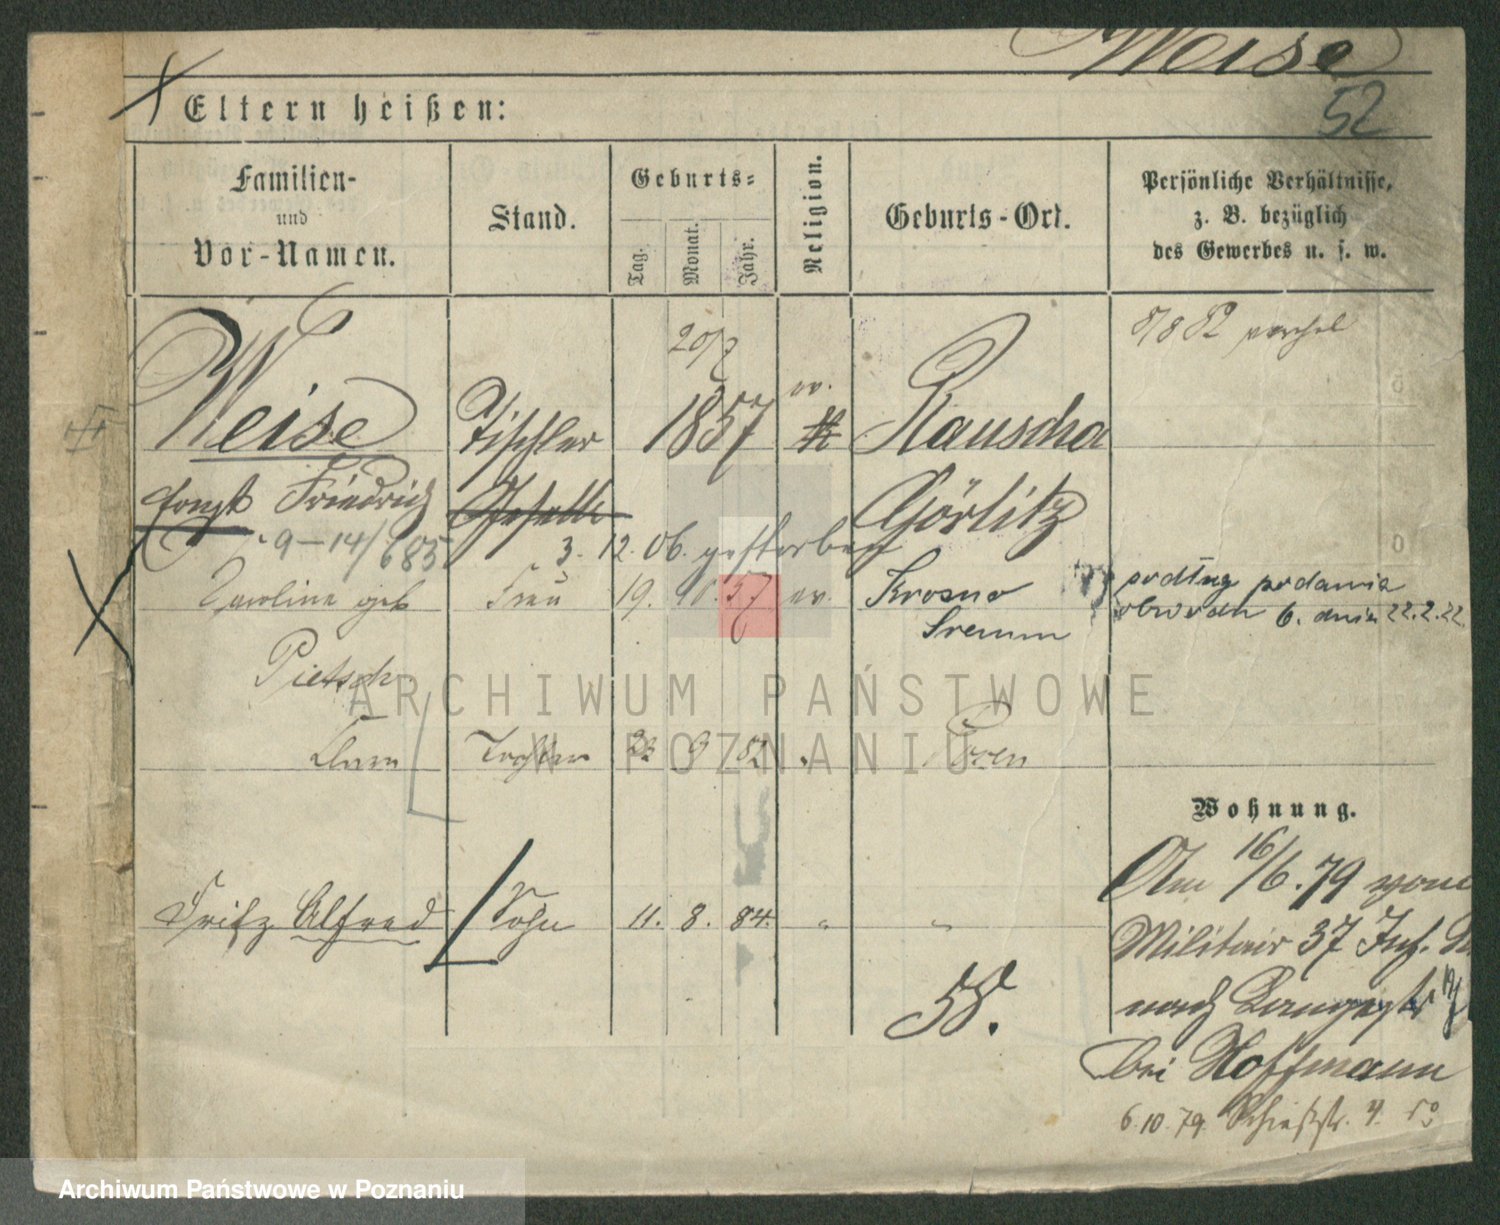 Weise
52
Eltern heißen:
Familien-
und
Vor-Namen.
Stand.
Geburts-
Tag.
Monat.
Jahr.
Religion.
Geburts-Ort.
Persönliche Verhältnisse,
z. B. bezüglich
des Gewerbes u. s. w.
20/7
ev.
Weise Tischler 1857 Rauscha
Friedrich Geselle Görlitz
9-14/685 3. 12. 06. gestorben
Caroline geb Frau 19. 10. 57 ev. Krosno podług podania
Sremm 6. dnia 22.2.22.
Pietsch
Tochter 9 82 Posen
Wohnung.
Am 16/6.79 vom
Fritz Alfred Sohn 11. 8. 84. " "
Militair 37 Inf.
58.
nach
bei Hoffmann
6.10.79. Schießstr. 4.
ARCHIWUM PAŃSTWOWE
W POZNANIU
Archiwum Państwowe w Poznaniu